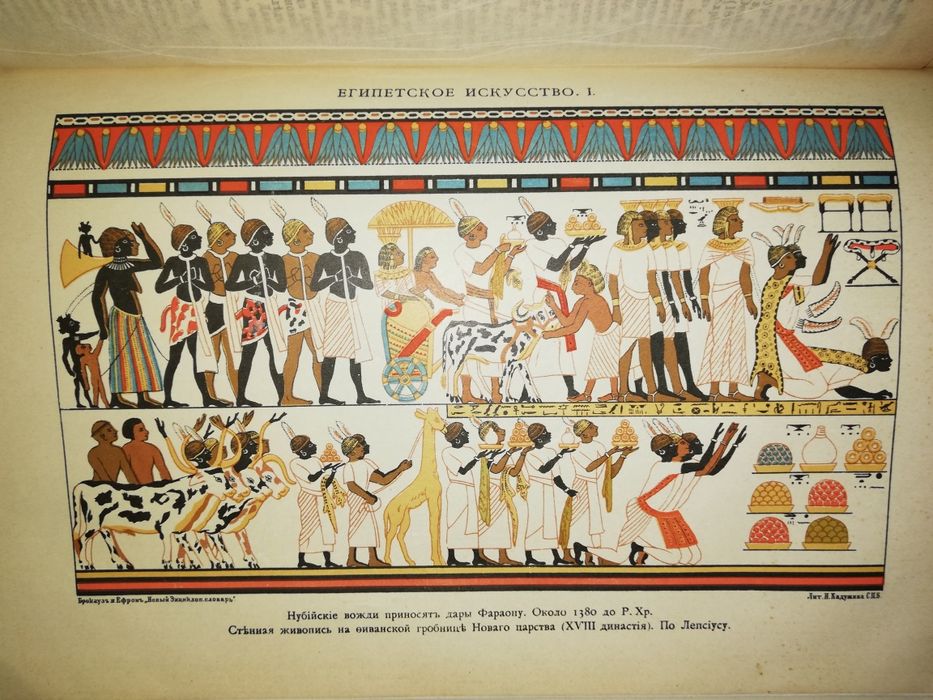 ЕГИПЕТСКОЕ ИСКУССТВО. I.
Брокгаузъ и Ефронъ „Новый Энциклоп. словарь“
Лит. И. Кадушина С.П.Б.
Нубійскіе вожди приносятъ дары Фараону. Около 1380 до Р. Хр.
Стѣнная живопись на ѳиванской гробницѣ Новаго царства (XVIII династія). По Лепсіусу.